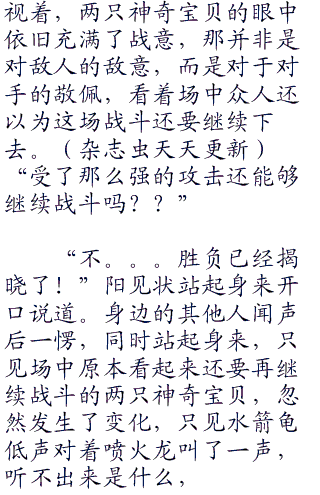 视着，两只神奇宝贝的眼中
依旧充满了战意，那并非是
对敌人的敌意，而是对于对
手的敬佩，看着场中众人还
以为这场战斗还要继续下
去。（杂志虫天天更新）
“受了那么强的攻击还能够
继续战斗吗？？”
“不。。。胜负已经揭
晓了！”阳见状站起身来开
口说道。身边的其他人闻声
后一愣，同时站起身来，只
见场中原本看起来还要再继
续战斗的两只神奇宝贝，忽
然发生了变化，只见水箭龟
低声对着喷火龙叫了一声，
听不出来是什么，